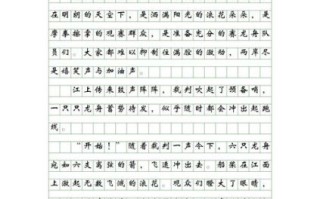 在明朗的天空下，是洒满阳光的浪花朵朵，是
摩拳擦掌的观赛群众，是准备充分的赛龙舟队
员们。大家都难以抑制住满脸的激动，两岸尽
是嬉笑声与加油声。
江上传来鼓声阵阵，裁判吹起了预备哨，
一只只龙舟蓄势待发，似乎随时都会冲出起跑
线。
“开始！”随着裁判一声令下，六只龙舟
宛如六支离弦的箭，飞速冲出去。船桨在江面
上激起无数飞溅的浪花。观众们瞪大了眼睛，